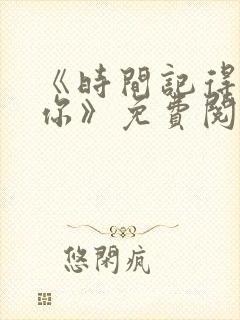 《時間記得
你》免費閱
悠閑瘋